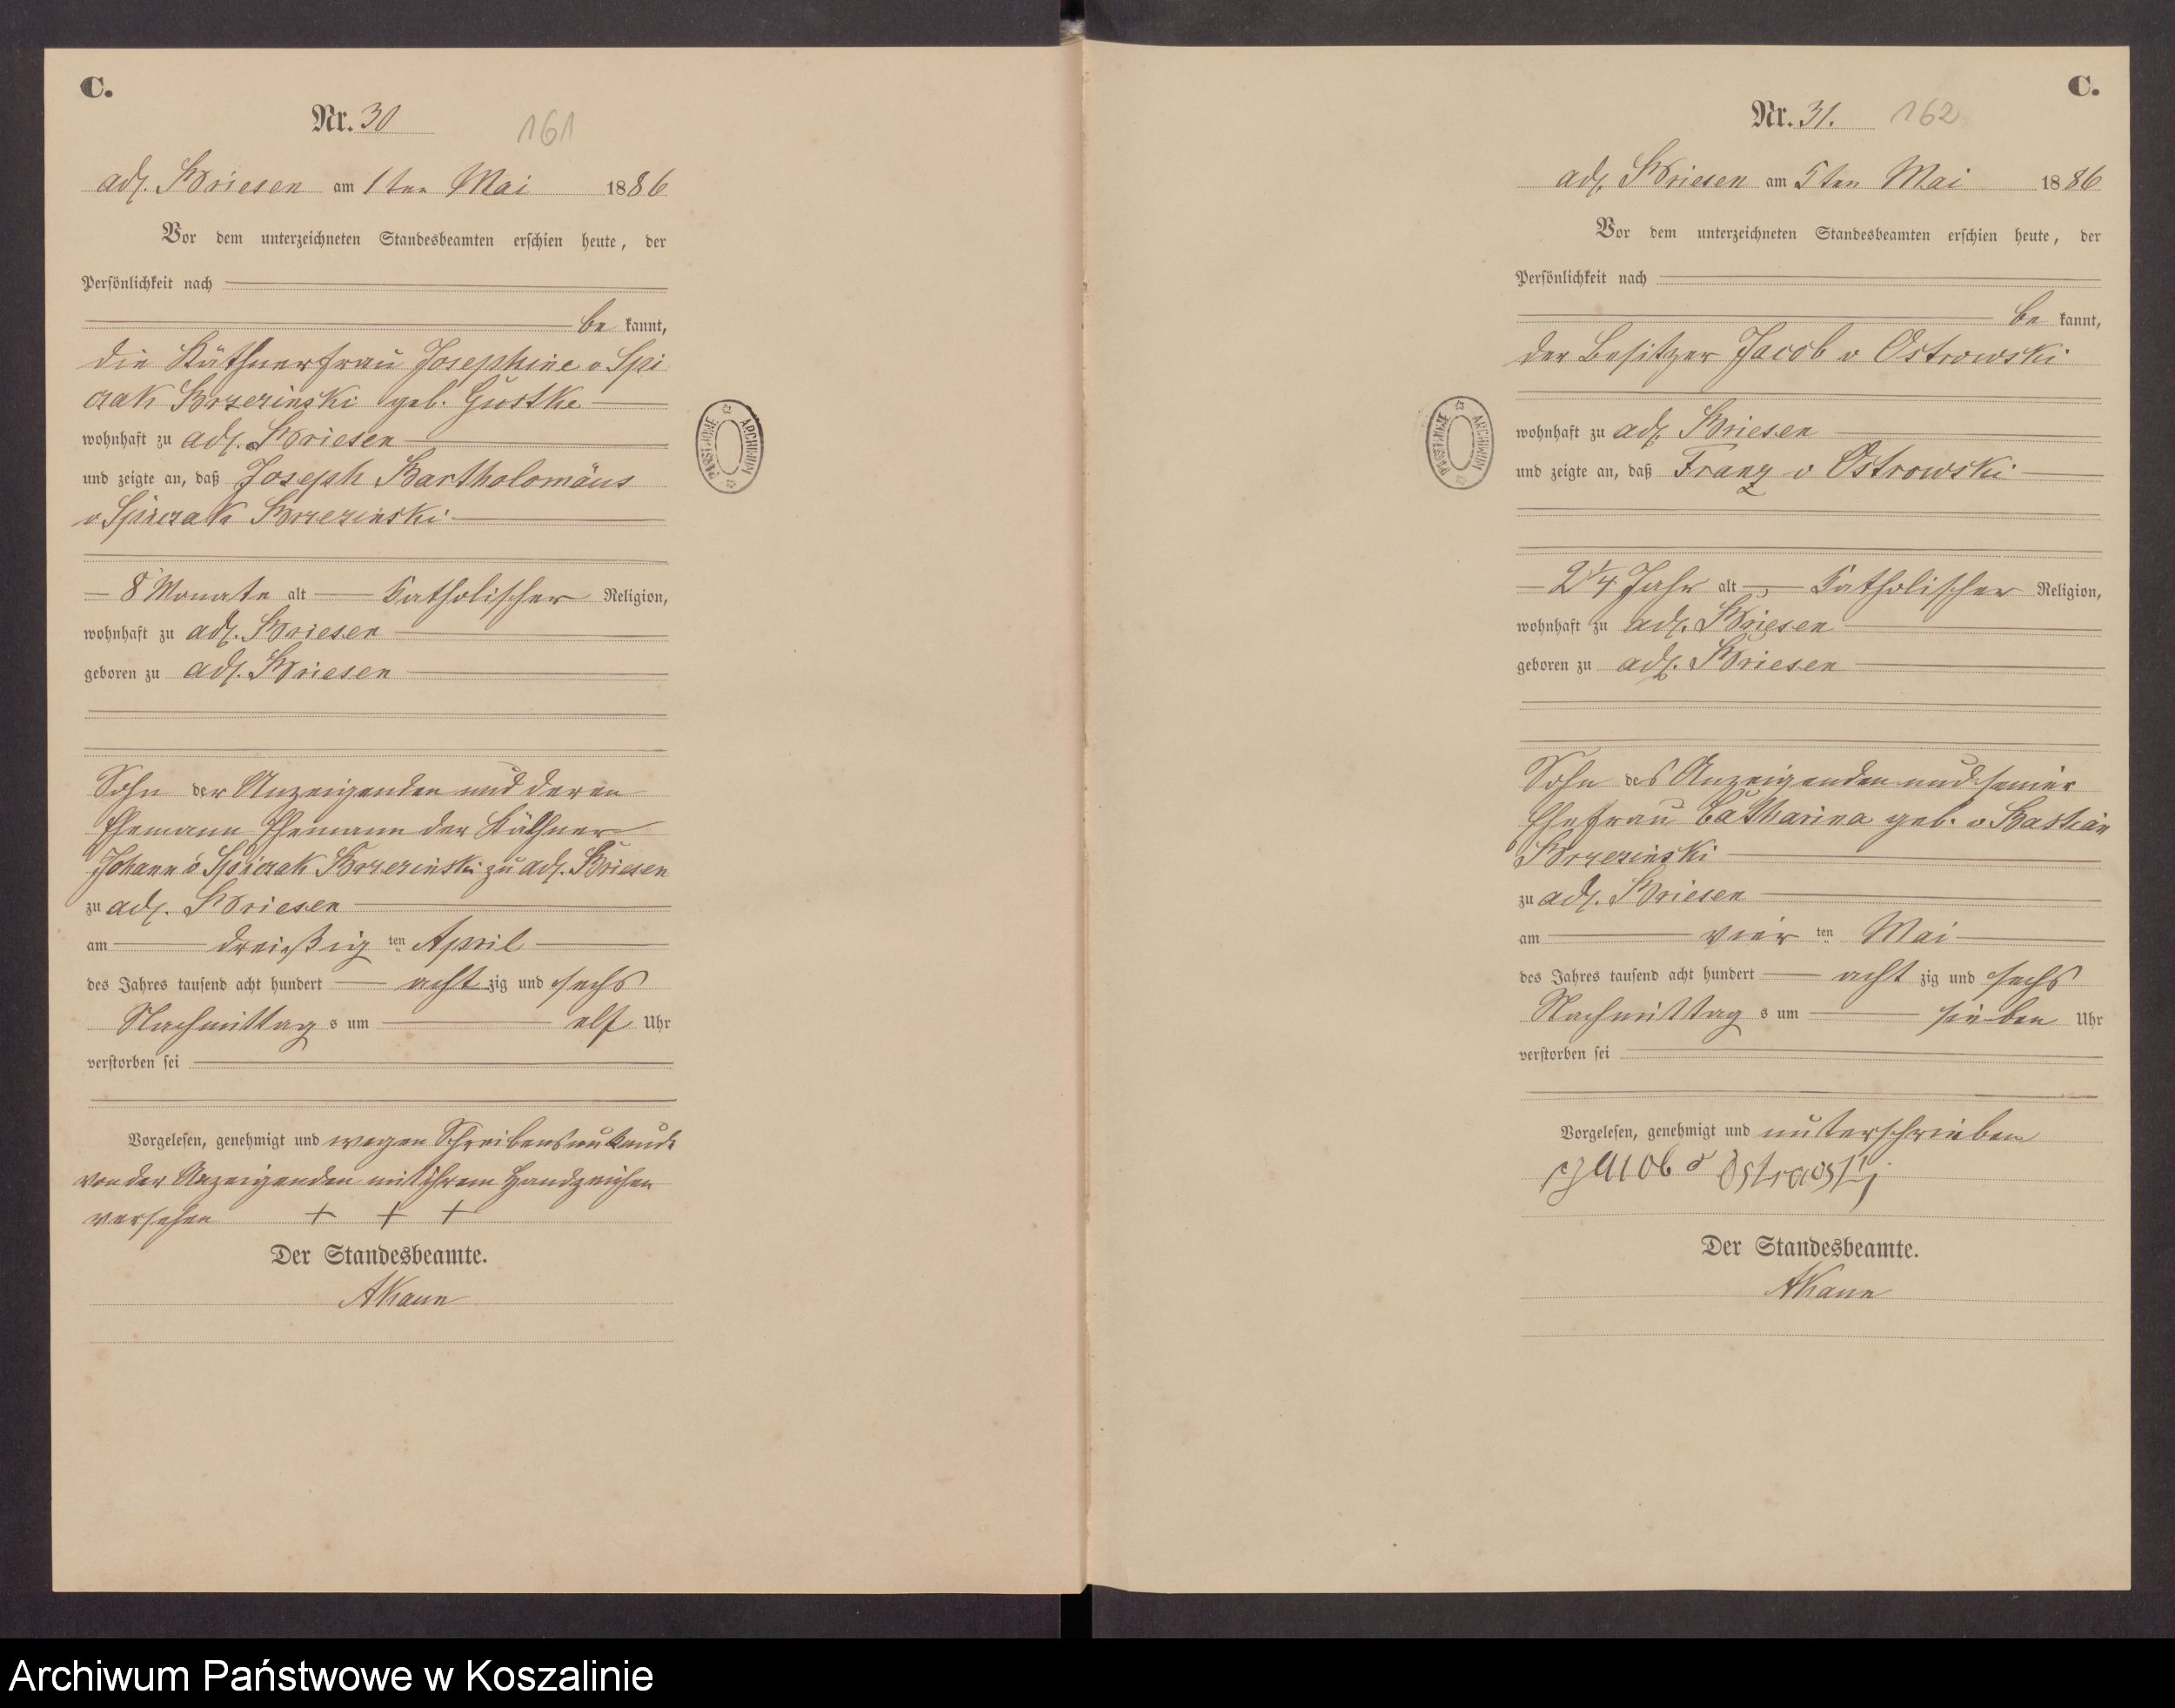 C.
Nr. 30
161
adl. Briesen am 1ten Mai 1886
Vor dem unterzeichneten Standesbeamten erschien heute, der
Persönlichkeit nach
be kannt,
die Käthnerfrau Josephine v Spi
czak Brzezinski geb. Gustke
wohnhaft zu adl. Briesen
und zeigte an, daß Joseph Bartholomäus
v Spiczak Brzezinski
8 Monate alt Katholischer Religion,
wohnhaft zu adl. Briesen
geboren zu adl. Briesen
Sohn der Anzeigenden und deren
Ehemann Ehemann der Käthner
Johann v Spiczak Brzezinski zu adl. Briesen
zu adl. Briesen
am dreißig ten April
des Jahres tausend acht hundert acht zig und sechs
Nachmittag s um elf Uhr
verstorben sei
Vorgelesen, genehmigt und wegen Schreibensunkunde
von der Anzeigenden mit ihrem Handzeichen
versehen + + +
Der Standesbeamte.
AKann
ARCHIWUM PAŃSTWOWE
C.
Nr. 31.
162
adl. Briesen am 5ten Mai 1886
Vor dem unterzeichneten Standesbeamten erschien heute, der
Persönlichkeit nach
be kannt,
der Besitzer Jacob v Ostrowski
wohnhaft zu adl. Briesen
und zeigte an, daß Franz v Ostrowski
2 1/4 Jahr alt, Katholischer Religion,
wohnhaft zu adl. Briesen
geboren zu adl. Briesen
Sohn des Anzeigenden und seiner
Ehefrau Catharina geb. v Bastian
Brzezinski
zu adl. Briesen
am vier ten Mai
des Jahres tausend acht hundert acht zig und sechs
Nachmittag s um sieben Uhr
verstorben sei
Vorgelesen, genehmigt und unterschrieben
Der Standesbeamte.
AKann
ARCHIWUM PAŃSTWOWE
Archiwum Państwowe w Koszalinie